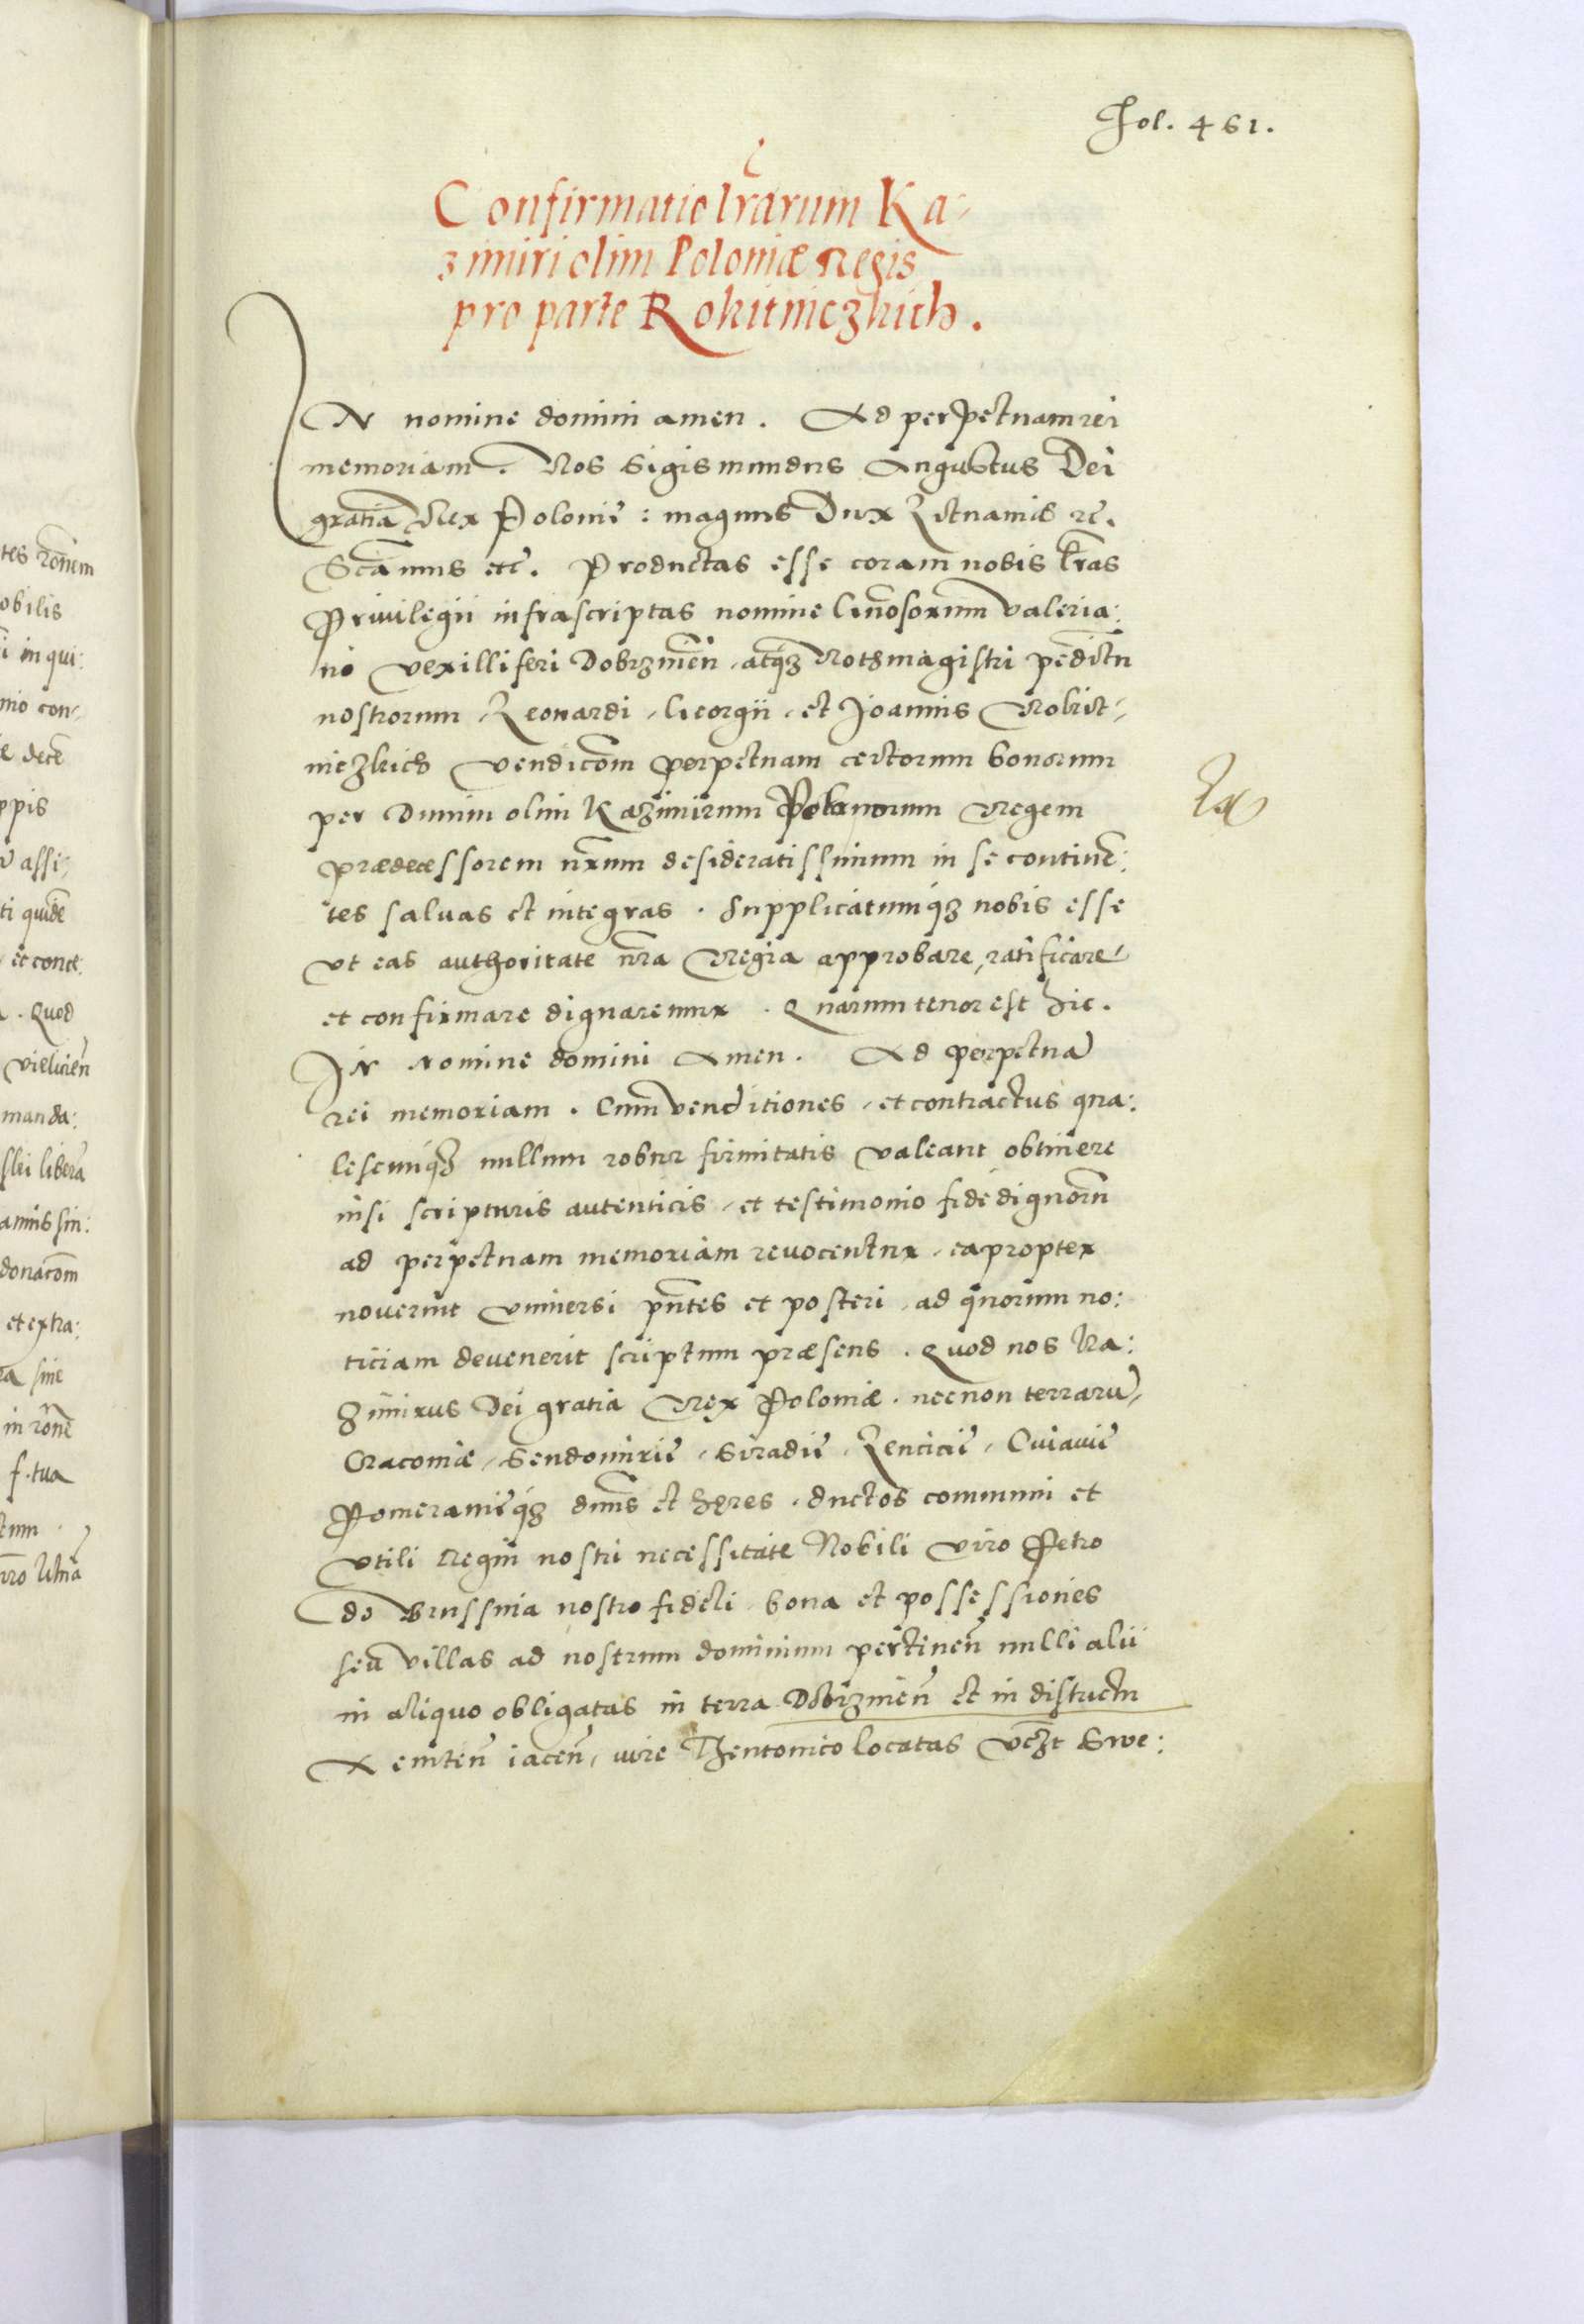 tes rōnem
obilis
i in qui:
nio con-
e decē
ppis
assi:
ti quidē
et conce.
. Quod
vieliciēn
manda:
slei liberā
amissin:
donacōm
et extra:
ra sine
in rōnē
f. tua
tum
Fol. 461.
Confirmatio lrārum Ka-
zimiri olim Poloniæ Regis
pro parte Rokitniczkich.
IN nomine domini amen. Ad perpetuam rei
memoriam. Nos Sigismundus Augustus Dei
gratia Rex Polonie: magnus Dux Lituanie etc.
Significamus etc. Productas esse coram nobis lrās
Privilegii infrascriptas nomine Gnōsorum Valeria:
ni vexilliferi Dobrzinēn, atq3 Rothmagistri peditū
nostrorum, Leonardi, Georgii, et Joannis Rokit-
niczkich vendicōm perpetuam certorum bonorum
per Diuum olim Kazimirum Polonorum Regem
prædecessorem nrūm desideratissimum in se continē:
tes saluas et integras. Supplicatumq3 nobis esse
ut eas authoritate nrā Regia approbare, ratificare
et confirmare dignaremur. Quarum tenor est hic.
In Nomine domini Amen. Ad perpetuā
rei memoriam. Cum venditiones, et contractus qua:
lescunq3 nullum robur firmitatis valeant obtinere
nisi scripturis autenticis, et testimonio fidedignorū
ad perpetuam memoriam reuocentur, eapropter
nouerint vniuersi pn̄tes et posteri, ad quorum no:
ticiam deuenerit scriptum præsens. Quod nos Ka:
zimirus Dei gratia Rex Poloniæ, necnon terrarū
Cracouiæ, Sendomirie, Siradie, Lencicie, Cuiauie
Pomeranieq3 dn̄us et hęres, ductos communi et
vtili Regni nostri necessitate Nobili viro Petro
de Brussnia nostro fideli, bona et possessiones
seu villas ad nostrum dominium pertinēn nulli alii
in aliquo obligatas in terra Dobrzinēn et in districtu
iacēn, iure Thentonico locatas vz̄t Swe: